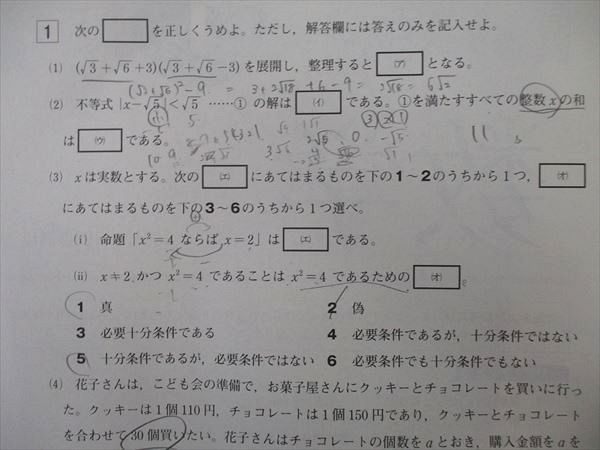 1 次の　　を正しくうめよ。ただし，解答欄には答えのみを記入せよ。
(1) (√3+√6+3)(√3+√6-3) を展開し，整理すると (ア) となる。
(√3+√6)²-9 = 3+2√18+6-9 = 2√18 = 6√2
(2) 不等式 |x-√5|<√5 ……① の解は (イ) である。①を満たすすべての整数 x の和
は (ウ) である。
(3) x は実数とする。次の (エ) にあてはまるものを下の 1～2 のうちから1つ， (オ)
にあてはまるものを下の 3～6 のうちから1つ選べ。
(i) 命題「x²=4 ならば x=2」は (エ) である。
(ii) x≠2 かつ x²=4 であることは x²=4 であるための (オ) 。
1 真　2 偽
3 必要十分条件である　4 必要条件であるが，十分条件ではない
5 十分条件であるが，必要条件ではない　6 必要条件でも十分条件でもない
(4) 花子さんは，こども会の準備で，お菓子屋さんにクッキーとチョコレートを買いに行っ
た。クッキーは1個110円，チョコレートは1個150円であり，クッキーとチョコレート
を合わせて30個買いたい。花子さんはチョコレートの個数を a とおき，購入金額を a を